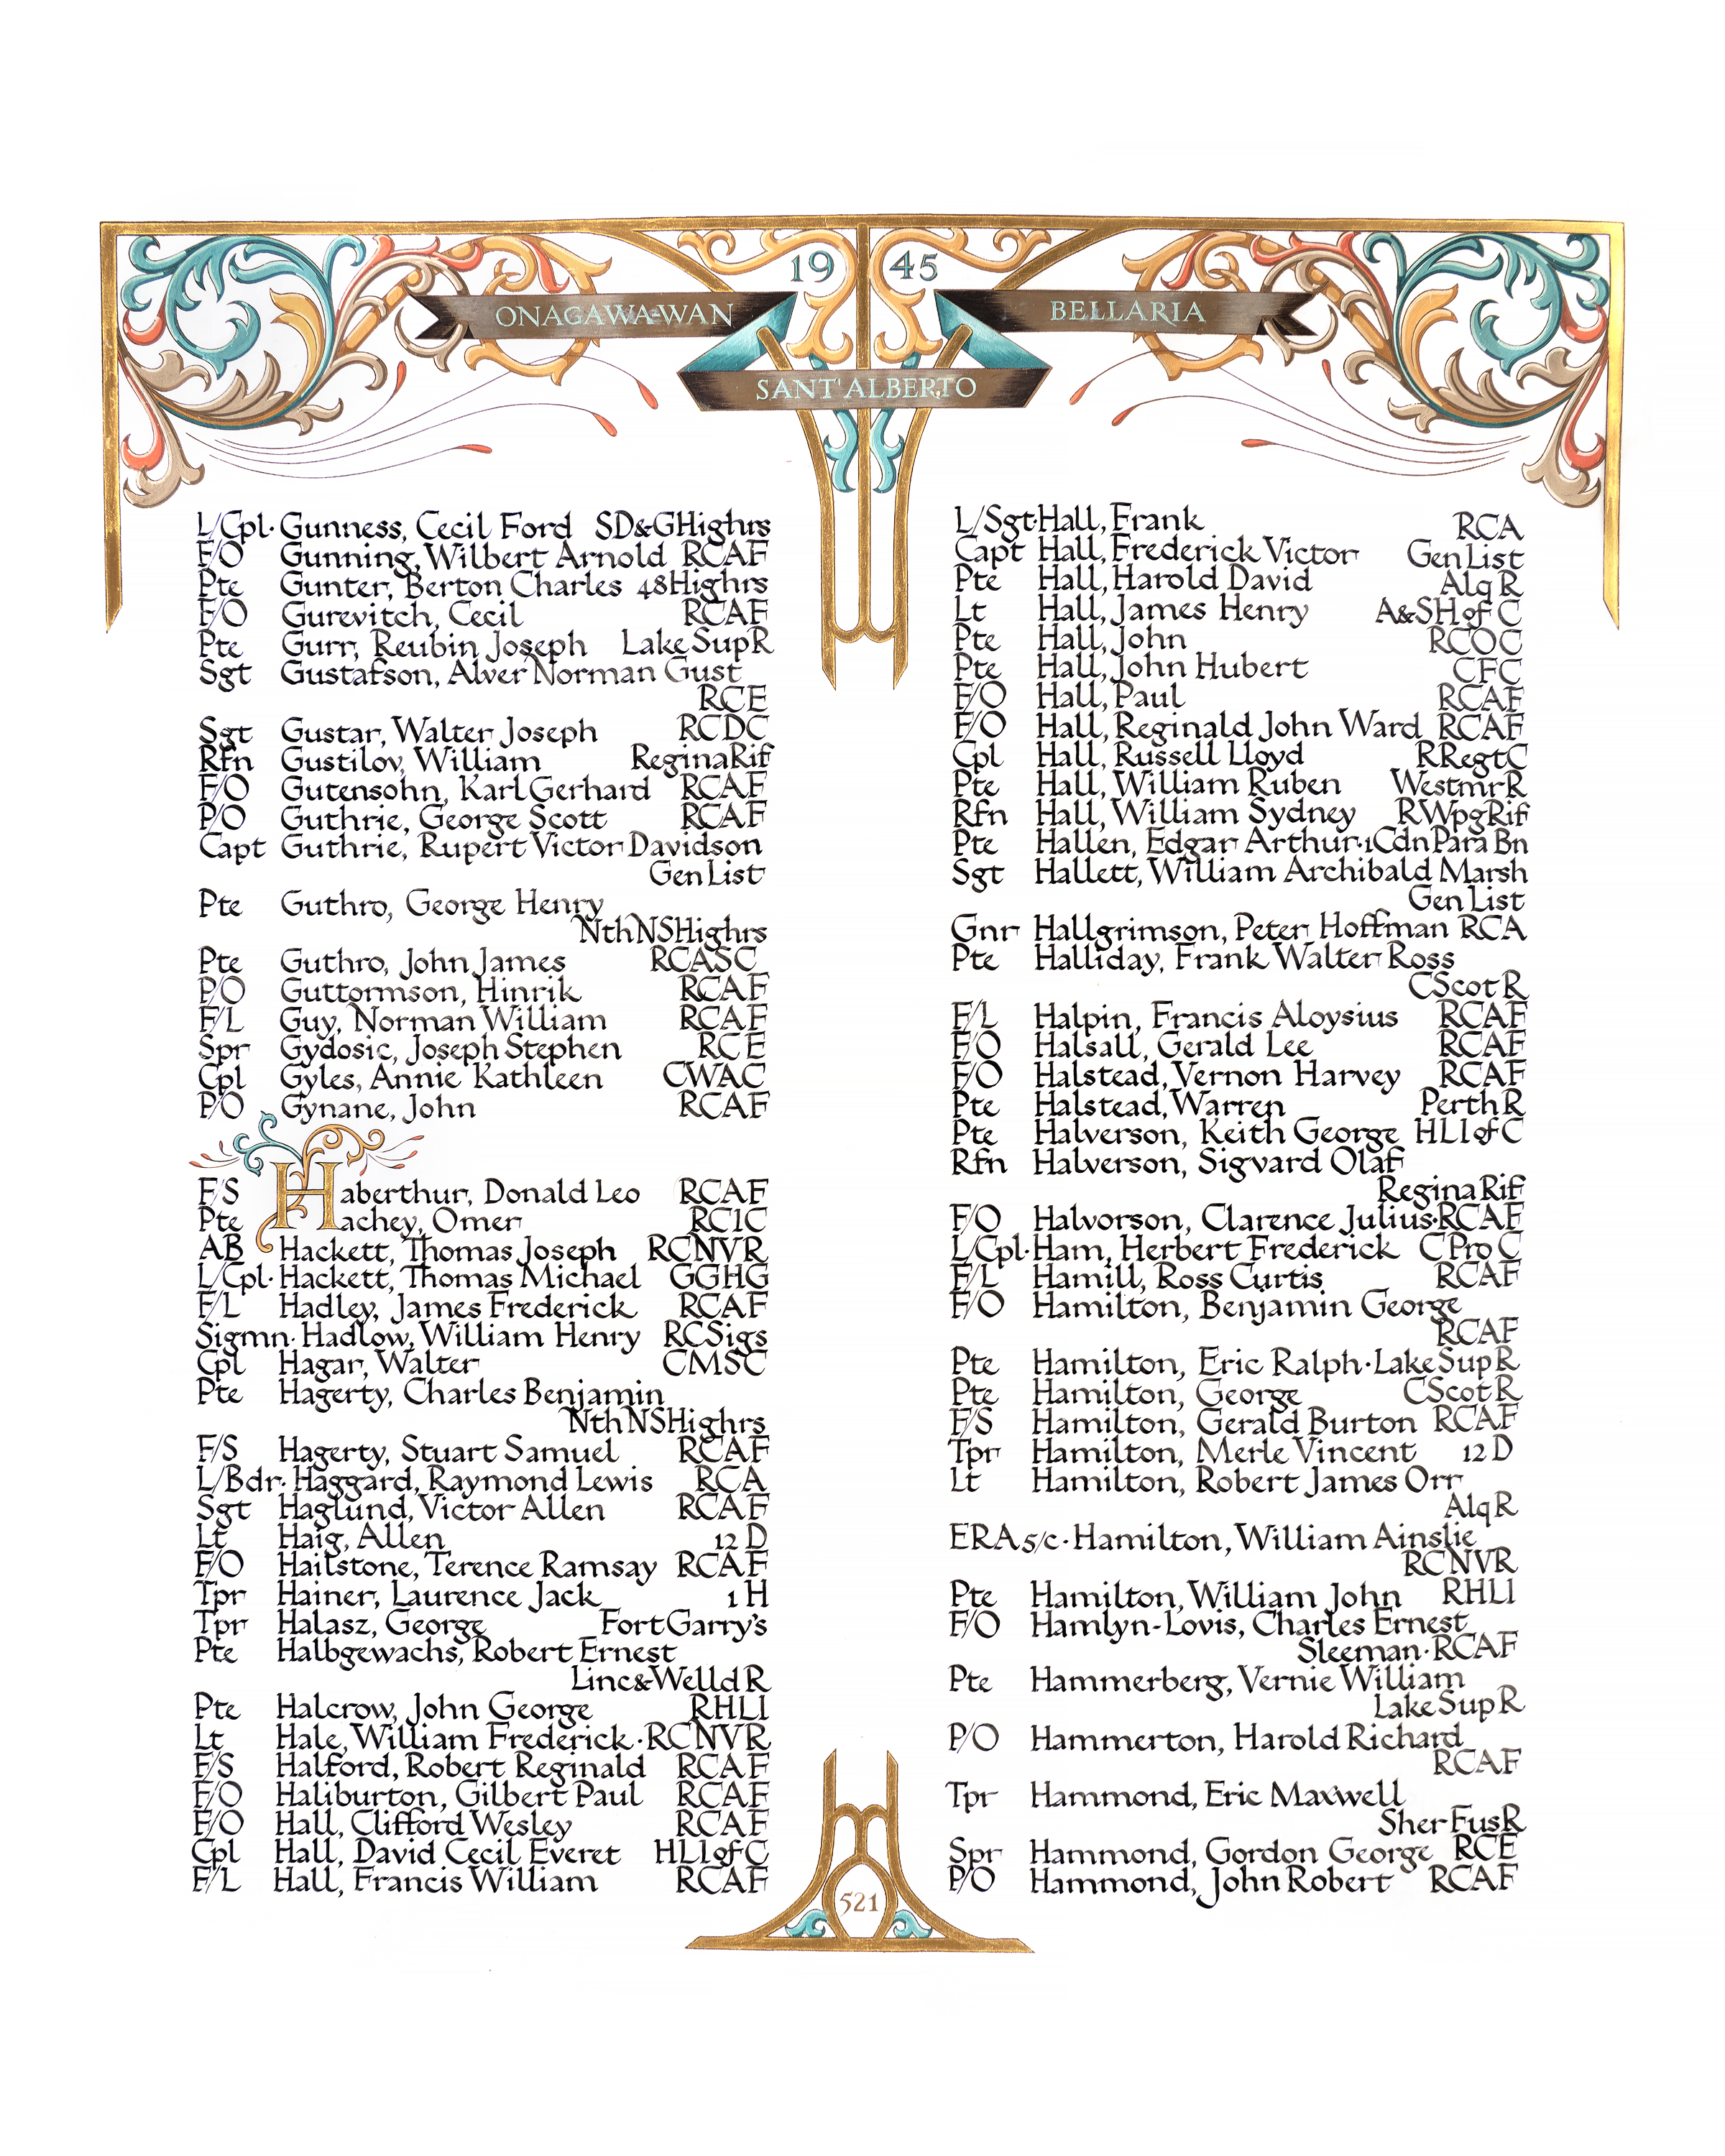 19 45
ONAGAWA-WAN
BELLARIA
SANT'ALBERTO
L/Cpl· Gunness, Cecil Ford SD&GHighrs
F/O Gunning, Wilbert Arnold RCAF
Pte Gunter, Berton Charles 48Highrs
F/O Gurevitch, Cecil RCAF
Pte Gurr, Reubin Joseph LakeSupR
Sgt Gustafson, Alver Norman Gust
RCE
Sgt Gustar, Walter Joseph RCDC
Rfn Gustilov, William ReginaRif
F/O Gutensohn, Karl Gerhard RCAF
P/O Guthrie, George Scott RCAF
Capt Guthrie, Rupert Victor Davidson
Gen List
Pte Guthro, George Henry
NthNSHighrs
Pte Guthro, John James RCASC
P/O Guttormson, Hinrik RCAF
F/L Guy, Norman William RCAF
Spr Gydosic, Joseph Stephen RCE
Cpl Gyles, Annie Kathleen CWAC
P/O Gynane, John RCAF
F/S Haberthur, Donald Leo RCAF
Pte Hachey, Omer RCIC
AB Hackett, Thomas Joseph RCNVR
L/Cpl· Hackett, Thomas Michael GGHG
F/L Hadley, James Frederick RCAF
Sigmn· Hadlow, William Henry RCSigs
Cpl Hagar, Walter CMSC
Pte Hagerty, Charles Benjamin
NthNSHighrs
F/S Hagerty, Stuart Samuel RCAF
L/Bdr· Haggard, Raymond Lewis RCA
Sgt Haglund, Victor Allen RCAF
Lt Haig, Allen 12 D
F/O Hailstone, Terence Ramsay RCAF
Tpr Hainer, Laurence Jack 1 H
Tpr Halasz, George Fort Garry's
Pte Halbgewachs, Robert Ernest
Linc&Welld R
Pte Halcrow, John George RHLI
Lt Hale, William Frederick · RCNVR
F/S Halford, Robert Reginald RCAF
F/O Haliburton, Gilbert Paul RCAF
F/O Hall, Clifford Wesley RCAF
Cpl Hall, David Cecil Everet HLIofC
F/L Hall, Francis William RCAF
L/Sgt· Hall, Frank RCA
Capt Hall, Frederick Victor Gen List
Pte Hall, Harold David Alq R
Lt Hall, James Henry A&SHofC
Pte Hall, John RCOC
Pte Hall, John Hubert CFC
F/O Hall, Paul RCAF
F/O Hall, Reginald John Ward RCAF
Cpl Hall, Russell Lloyd RRegtC
Pte Hall, William Ruben WestmrR
Rfn Hall, William Sydney RWpgRif
Pte Hallen, Edgar Arthur·1Cdn Para Bn
Sgt Hallett, William Archibald Marsh
Gen List
Gnr Hallgrimson, Peter Hoffman RCA
Pte Halliday, Frank Walter Ross
CScot R
F/L Halpin, Francis Aloysius RCAF
F/O Halsall, Gerald Lee RCAF
F/O Halstead, Vernon Harvey RCAF
Pte Halstead, Warren Perth R
Pte Halverson, Keith George HLIofC
Rfn Halverson, Sigvard Olaf
ReginaRif
F/O Halvorson, Clarence Julius·RCAF
L/Cpl· Ham, Herbert Frederick C Pro C
F/L Hamill, Ross Curtis RCAF
F/O Hamilton, Benjamin George
RCAF
Pte Hamilton, Eric Ralph·LakeSupR
Pte Hamilton, George CScot R
F/S Hamilton, Gerald Burton RCAF
Tpr Hamilton, Merle Vincent 12 D
Lt Hamilton, Robert James Orr
Alq R
ERA 5/c · Hamilton, William Ainslie
RCNVR
Pte Hamilton, William John RHLI
F/O Hamlyn-Lovis, Charles Ernest
Sleeman·RCAF
Pte Hammerberg, Vernie William
LakeSup R
P/O Hammerton, Harold Richard
RCAF
Tpr Hammond, Eric Maxwell
Sher FusR
Spr Hammond, Gordon George RCE
P/O Hammond, John Robert RCAF
521